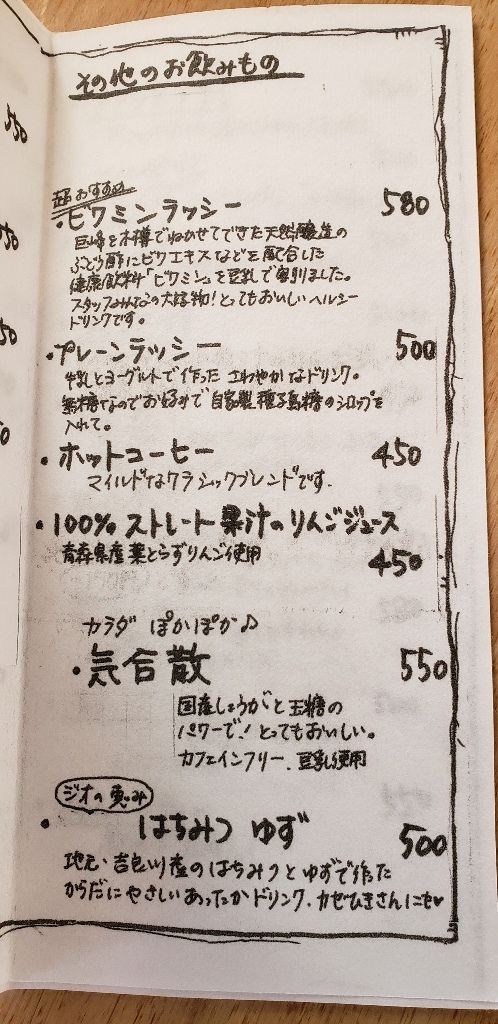 550
550
50
0
その他のお飲みもの
超おすすめ
・ビワミンラッシー 580
巨峰を木樽でねかせてできた天然醸造の
ぶどう酢にビワエキスなどを配合した
健康飲料「ビワミン」を豆乳で割りました。
スタッフみんなの大好物!とってもおいしいヘルシー
ドリンクです。
・プレーンラッシー 500
牛乳とヨーグルトで作った さわやかなドリンク。
無糖なのでお好みで 自家製種子島糖のシロップを
入れて。
・ホットコーヒー 450
マイルドなクラシックブレンドです.
・100% ストレート果汁のりんごジュース
青森県産葉とらずりんご使用 450
カラダ ぽかぽか♪
・気合散 550
国産しょうがと 玉糖の
パワーで!とってもおいしい。
カフェインフリー. 豆乳使用
ジオの恵み
・ はちみつ ゆず 500
地元・吉良川産のはちみつとゆずで作った
からだにやさしいあったかドリンク. カゼひきさんにも♥